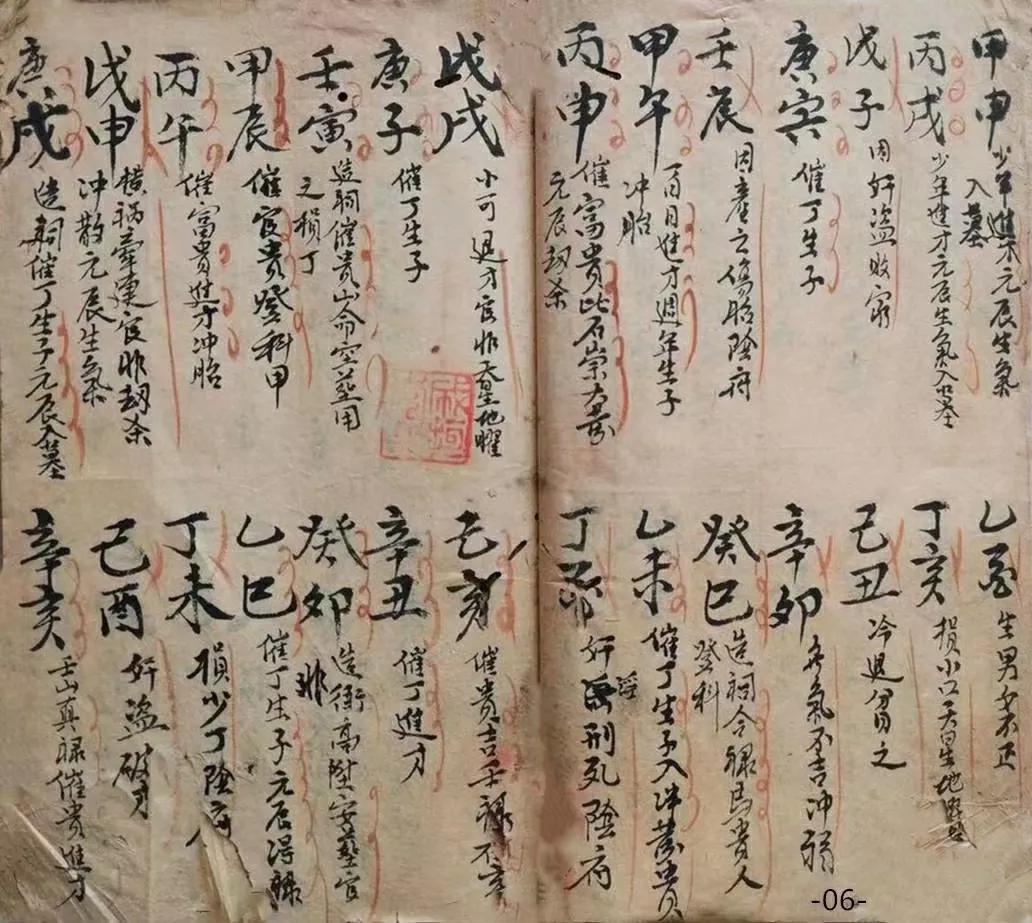 甲申 少年進才元辰生氣
入墓
丙戌 少年進才元辰生氣入墓
戊子 因奸盜敗窮
庚寅 催丁生子
壬辰 因產之傷胎陰府
甲午 百日進才週年生子
冲胎
丙申 催富貴比石崇大發
元辰劫杀
乙酉 生男女不正
丁亥 損小口天星地曜
己丑 冷退分之
辛卯 冬氣不吉冲弱
癸巳 造祠合祿馬貴人
登科
乙未 催丁生子入冲發貴
丁酉 奸淫刑死陰府
戊戌 小可退才官非天星地曜
庚子 催丁生子
壬寅 造祠催貴山命空墓用
之損丁
甲辰 催官貴登科甲
丙午 催富貴進才冲胎
戊申 橫禍牽連官非劫杀
冲散元辰生氣
庚戌 造祠催丁生子元辰入墓
己亥 催貴吉壬祿不
辛丑 催丁進才
癸卯 造衙高陞安墓官
非
乙巳 催丁生子元辰得祿
丁未 損少丁陰府
己酉 奸盜破才
辛亥 壬山真祿催貴進才
-06-